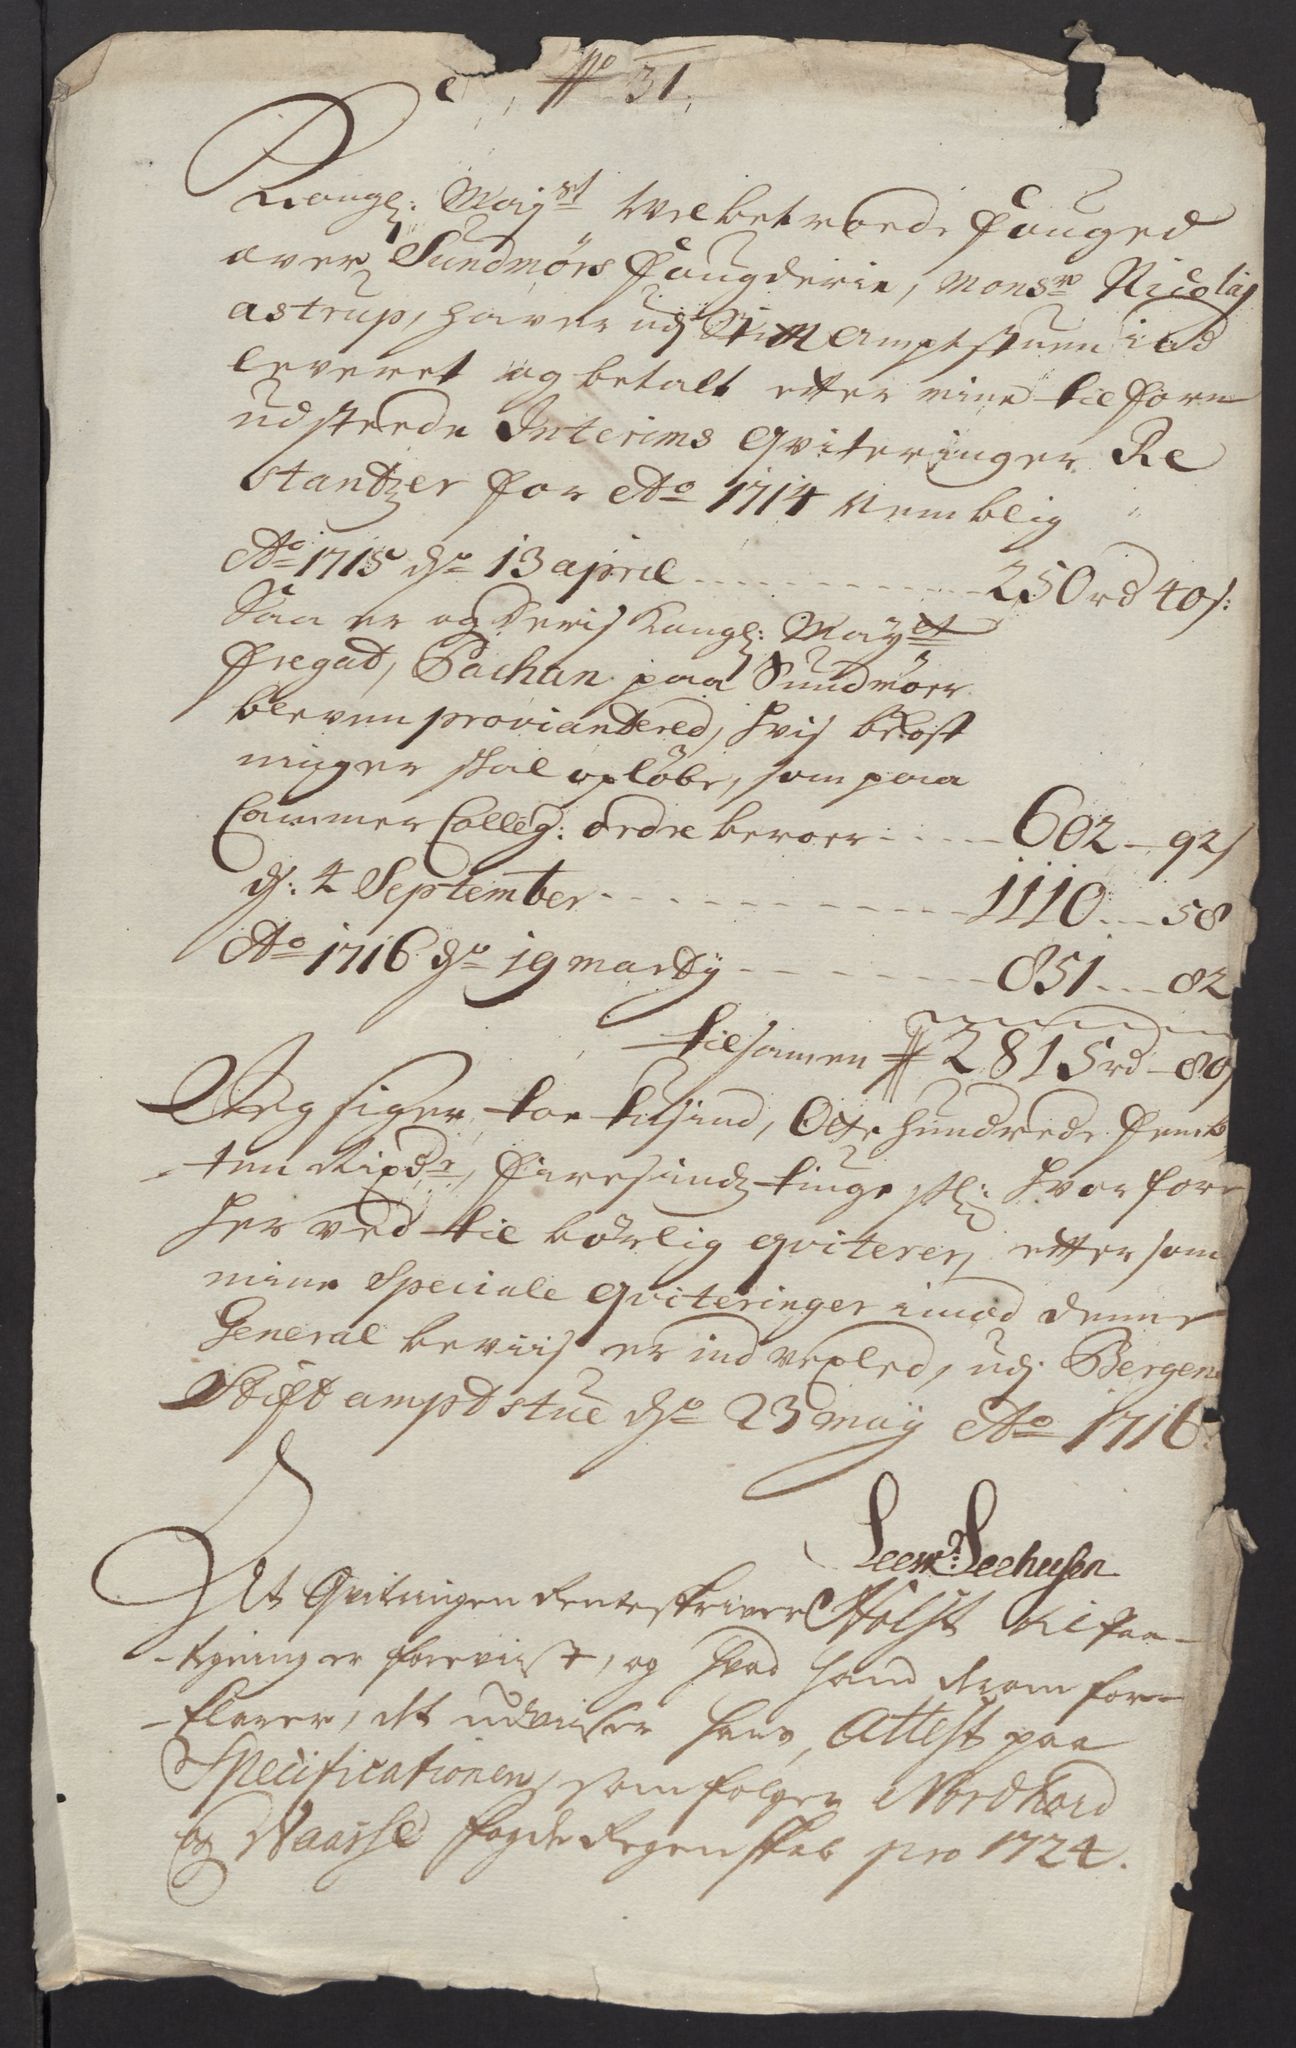 No 31.
Kongl: Mayst Velbetroede fouged
over Sundmörs fougderie, Monsr Nicolaj
astrup, haver udj Stiftampstuen ind
leveret og betalt efter mine tilforn
udsteede Interims qviteringer Re
stantzer for Ao 1714 Nemblig
Ao 1715 dn 13 april 250 rd 40 s:
Saa er og deris Kongl: Mayet
fregat, Pachan paa Sundmöer
bleven provianteret, hvis bekost
ninger skal opløbe, som paa
Cammer Colleg: ordre beroer 602 92 s
d: 4 September 1110 58
Ao 1716 dn 19 marty 851 82
tilsamen 2815 rd 80 s
Jeg siger toe tusind, Otte hundrede femb
ten Rixdr, firesindstiuge sk: hvorfore
herved til börlig qviterer, efter som
mine Speciale qviteringer imod denne
General beviis er indvexled, udj Bergens
Stiftampdstue dn 23 may Ao 1716.
Leewr: Leehusen
At Qviteringen Renteskriver Holst til paa-
tegning er foreviist, og hvad hand derom for-
klarer, det udviiser hans Attest paa
Specificationen, som følger Nordhord
og Waasse fogderegenskab pro 1724.